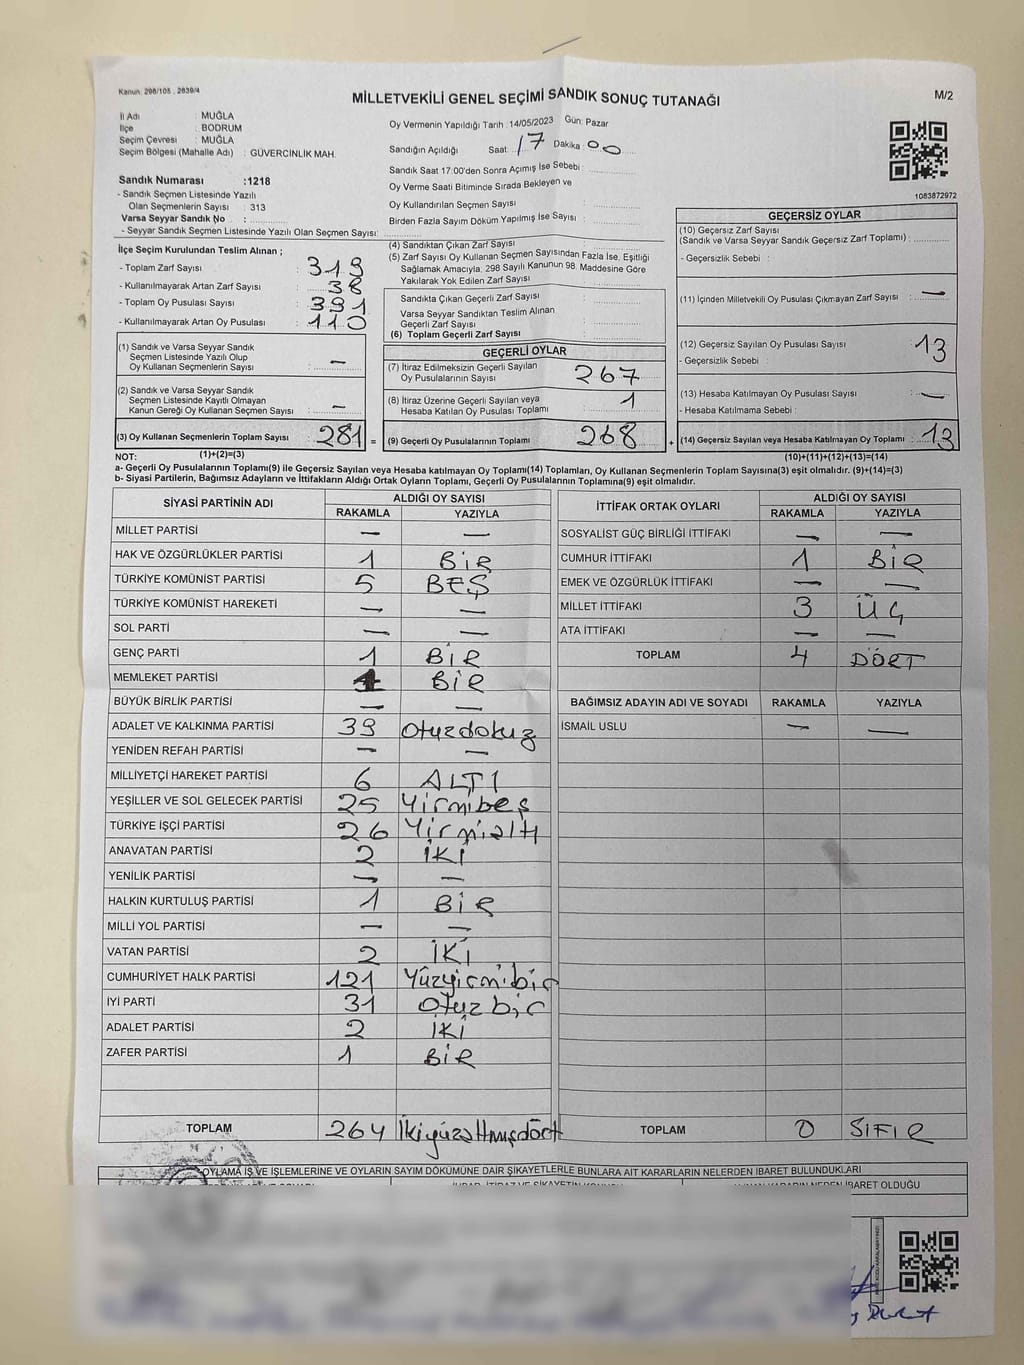 Kanun: 298/105 , 2839/4
MİLLETVEKİLİ GENEL SEÇİMİ SANDIK SONUÇ TUTANAĞI
M/2
İl Adı : MUĞLA
İlçe : BODRUM
Seçim Çevresi : MUĞLA
Seçim Bölgesi (Mahalle Adı) : GÜVERCİNLİK MAH.
Sandık Numarası :1218
- Sandık Seçmen Listesinde Yazılı
Olan Seçmenlerin Sayısı : 313
Varsa Seyyar Sandık No :
- Seyyar Sandık Seçmen Listesinde Yazılı Olan Seçmen Sayısı:
Oy Vermenin Yapıldığı Tarih :14/05/2023 Gün: Pazar
Sandığın Açıldığı Saat : 17 Dakika : 00
Sandık Saat 17:00'den Sonra Açımış İse Sebebi :
Oy Verme Saati Bitiminde Sırada Bekleyen ve
Oy Kullandırılan Seçmen Sayısı :
Birden Fazla Sayım Döküm Yapılmış İse Sayısı :
1083872972
İlçe Seçim Kurulundan Teslim Alınan ;
- Toplam Zarf Sayısı : 319
- Kullanılmayarak Artan Zarf Sayısı : 38
- Toplam Oy Pusulası Sayısı : 391
- Kullanılmayarak Artan Oy Pusulası : 110
(1) Sandık ve Varsa Seyyar Sandık
Seçmen Listesinde Yazılı Olup
Oy Kullanan Seçmenlerin Sayısı : —
(2) Sandık ve Varsa Seyyar Sandık
Seçmen Listesinde Kayıtlı Olmayan
Kanun Gereği Oy Kullanan Seçmen Sayısı : —
(3) Oy Kullanan Seçmenlerin Toplam Sayısı : 281 =
(4) Sandıktan Çıkan Zarf Sayısı :
(5) Zarf Sayısı Oy Kullanan Seçmen Sayısından Fazla İse, Eşitliği
Sağlamak Amacıyla, 298 Sayılı Kanunun 98. Maddesine Göre
Yakılarak Yok Edilen Zarf Sayısı :
Sandıkta Çıkan Geçerli Zarf Sayısı :
Varsa Seyyar Sandıktan Teslim Alınan
Geçerli Zarf Sayısı :
(6) Toplam Geçerli Zarf Sayısı :
GEÇERLİ OYLAR
(7) İtiraz Edilmeksizin Geçerli Sayılan
Oy Pusulalarının Sayısı : 267
(8) İtiraz Üzerine Geçerli Sayılan veya
Hesaba Katılan Oy Pusulası Toplamı : 1
(9) Geçerli Oy Pusulalarının Toplamı : 268 +
GEÇERSİZ OYLAR
(10) Geçersiz Zarf Sayısı
(Sandık ve Varsa Seyyar Sandık Geçersiz Zarf Toplamı) :
- Geçersizlik Sebebi :
(11) İçinden Milletvekili Oy Pusulası Çıkmayan Zarf Sayısı : —
(12) Geçersiz Sayılan Oy Pusulası Sayısı : 13
- Geçersizlik Sebebi :
(13) Hesaba Katılmayan Oy Pusulası Sayısı : —
- Hesaba Katılmama Sebebi :
(14) Geçersiz Sayılan veya Hesaba Katılmayan Oy Toplamı : 13
NOT: (1)+(2)=(3) (10)+(11)+(12)+(13)=(14)
a- Geçerli Oy Pusulalarının Toplamı(9) ile Geçersiz Sayılan veya Hesaba katılmayan Oy Toplamı(14) Toplamları, Oy Kullanan Seçmenlerin Toplam Sayısına(3) eşit olmalıdır. (9)+(14)=(3)
b- Siyasi Partilerin, Bağımsız Adayların ve İttifakların Aldığı Ortak Oyların Toplamı, Geçerli Oy Pusulalarının Toplamına(9) eşit olmalıdır.
SİYASİ PARTİNİN ADI ALDIĞI OY SAYISI
RAKAMLA YAZIYLA
MİLLET PARTİSİ — —
HAK VE ÖZGÜRLÜKLER PARTİSİ 1 BİR
TÜRKİYE KOMÜNİST PARTİSİ 5 BEŞ
TÜRKİYE KOMÜNİST HAREKETİ — —
SOL PARTİ — —
GENÇ PARTİ 1 BİR
MEMLEKET PARTİSİ 1 BİR
BÜYÜK BİRLİK PARTİSİ — —
ADALET VE KALKINMA PARTİSİ 39 Otuzdokuz
YENİDEN REFAH PARTİSİ — —
MİLLİYETÇİ HAREKET PARTİSİ 6 ALTI
YEŞİLLER VE SOL GELECEK PARTİSİ 25 Yirmibeş
TÜRKİYE İŞÇİ PARTİSİ 26 Yirmialtı
ANAVATAN PARTİSİ 2 İKİ
YENİLİK PARTİSİ — —
HALKIN KURTULUŞ PARTİSİ 1 BİR
MİLLİ YOL PARTİSİ — —
VATAN PARTİSİ 2 İKİ
CUMHURİYET HALK PARTİSİ 121 Yüzyirmibir
İYİ PARTİ 31 Otuzbir
ADALET PARTİSİ 2 İKİ
ZAFER PARTİSİ 1 BİR
TOPLAM 264 İkiyüzaltmışdört
İTTİFAK ORTAK OYLARI ALDIĞI OY SAYISI
RAKAMLA YAZIYLA
SOSYALİST GÜÇ BİRLİĞİ İTTİFAKI — —
CUMHUR İTTİFAKI 1 BİR
EMEK VE ÖZGÜRLÜK İTTİFAKI — —
MİLLET İTTİFAKI 3 ÜÇ
ATA İTTİFAKI — —
TOPLAM 4 DÖRT
BAĞIMSIZ ADAYIN ADI VE SOYADI RAKAMLA YAZIYLA
İSMAİL USLU — —
TOPLAM 0 SIFIR
OYLAMA İŞ VE İŞLEMLERİNE VE OYLARIN SAYIM DÖKÜMÜNE DAİR ŞİKAYETLERLE BUNLARA AİT KARARLARIN NELERDEN İBARET BULUNDUKLARI